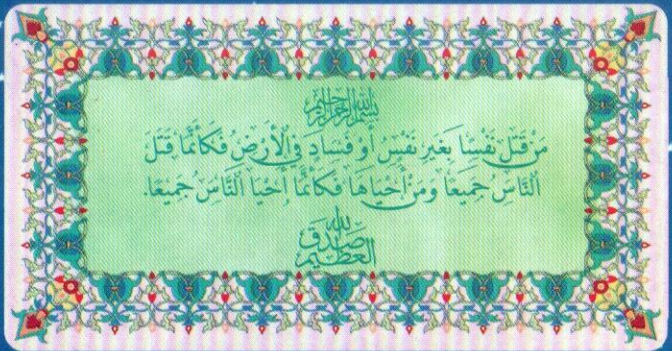 بسم الله الرحمن الرحيم
مَنْ قَتَلَ نَفْسًا بِغَيْرِ نَفْسٍ أَوْ فَسَادٍ فِي الْأَرْضِ فَكَأَنَّمَا قَتَلَ
النَّاسَ جَمِيعًا وَمَنْ أَحْيَاهَا فَكَأَنَّمَا أَحْيَا النَّاسَ جَمِيعًا.
صدق الله
العظيم